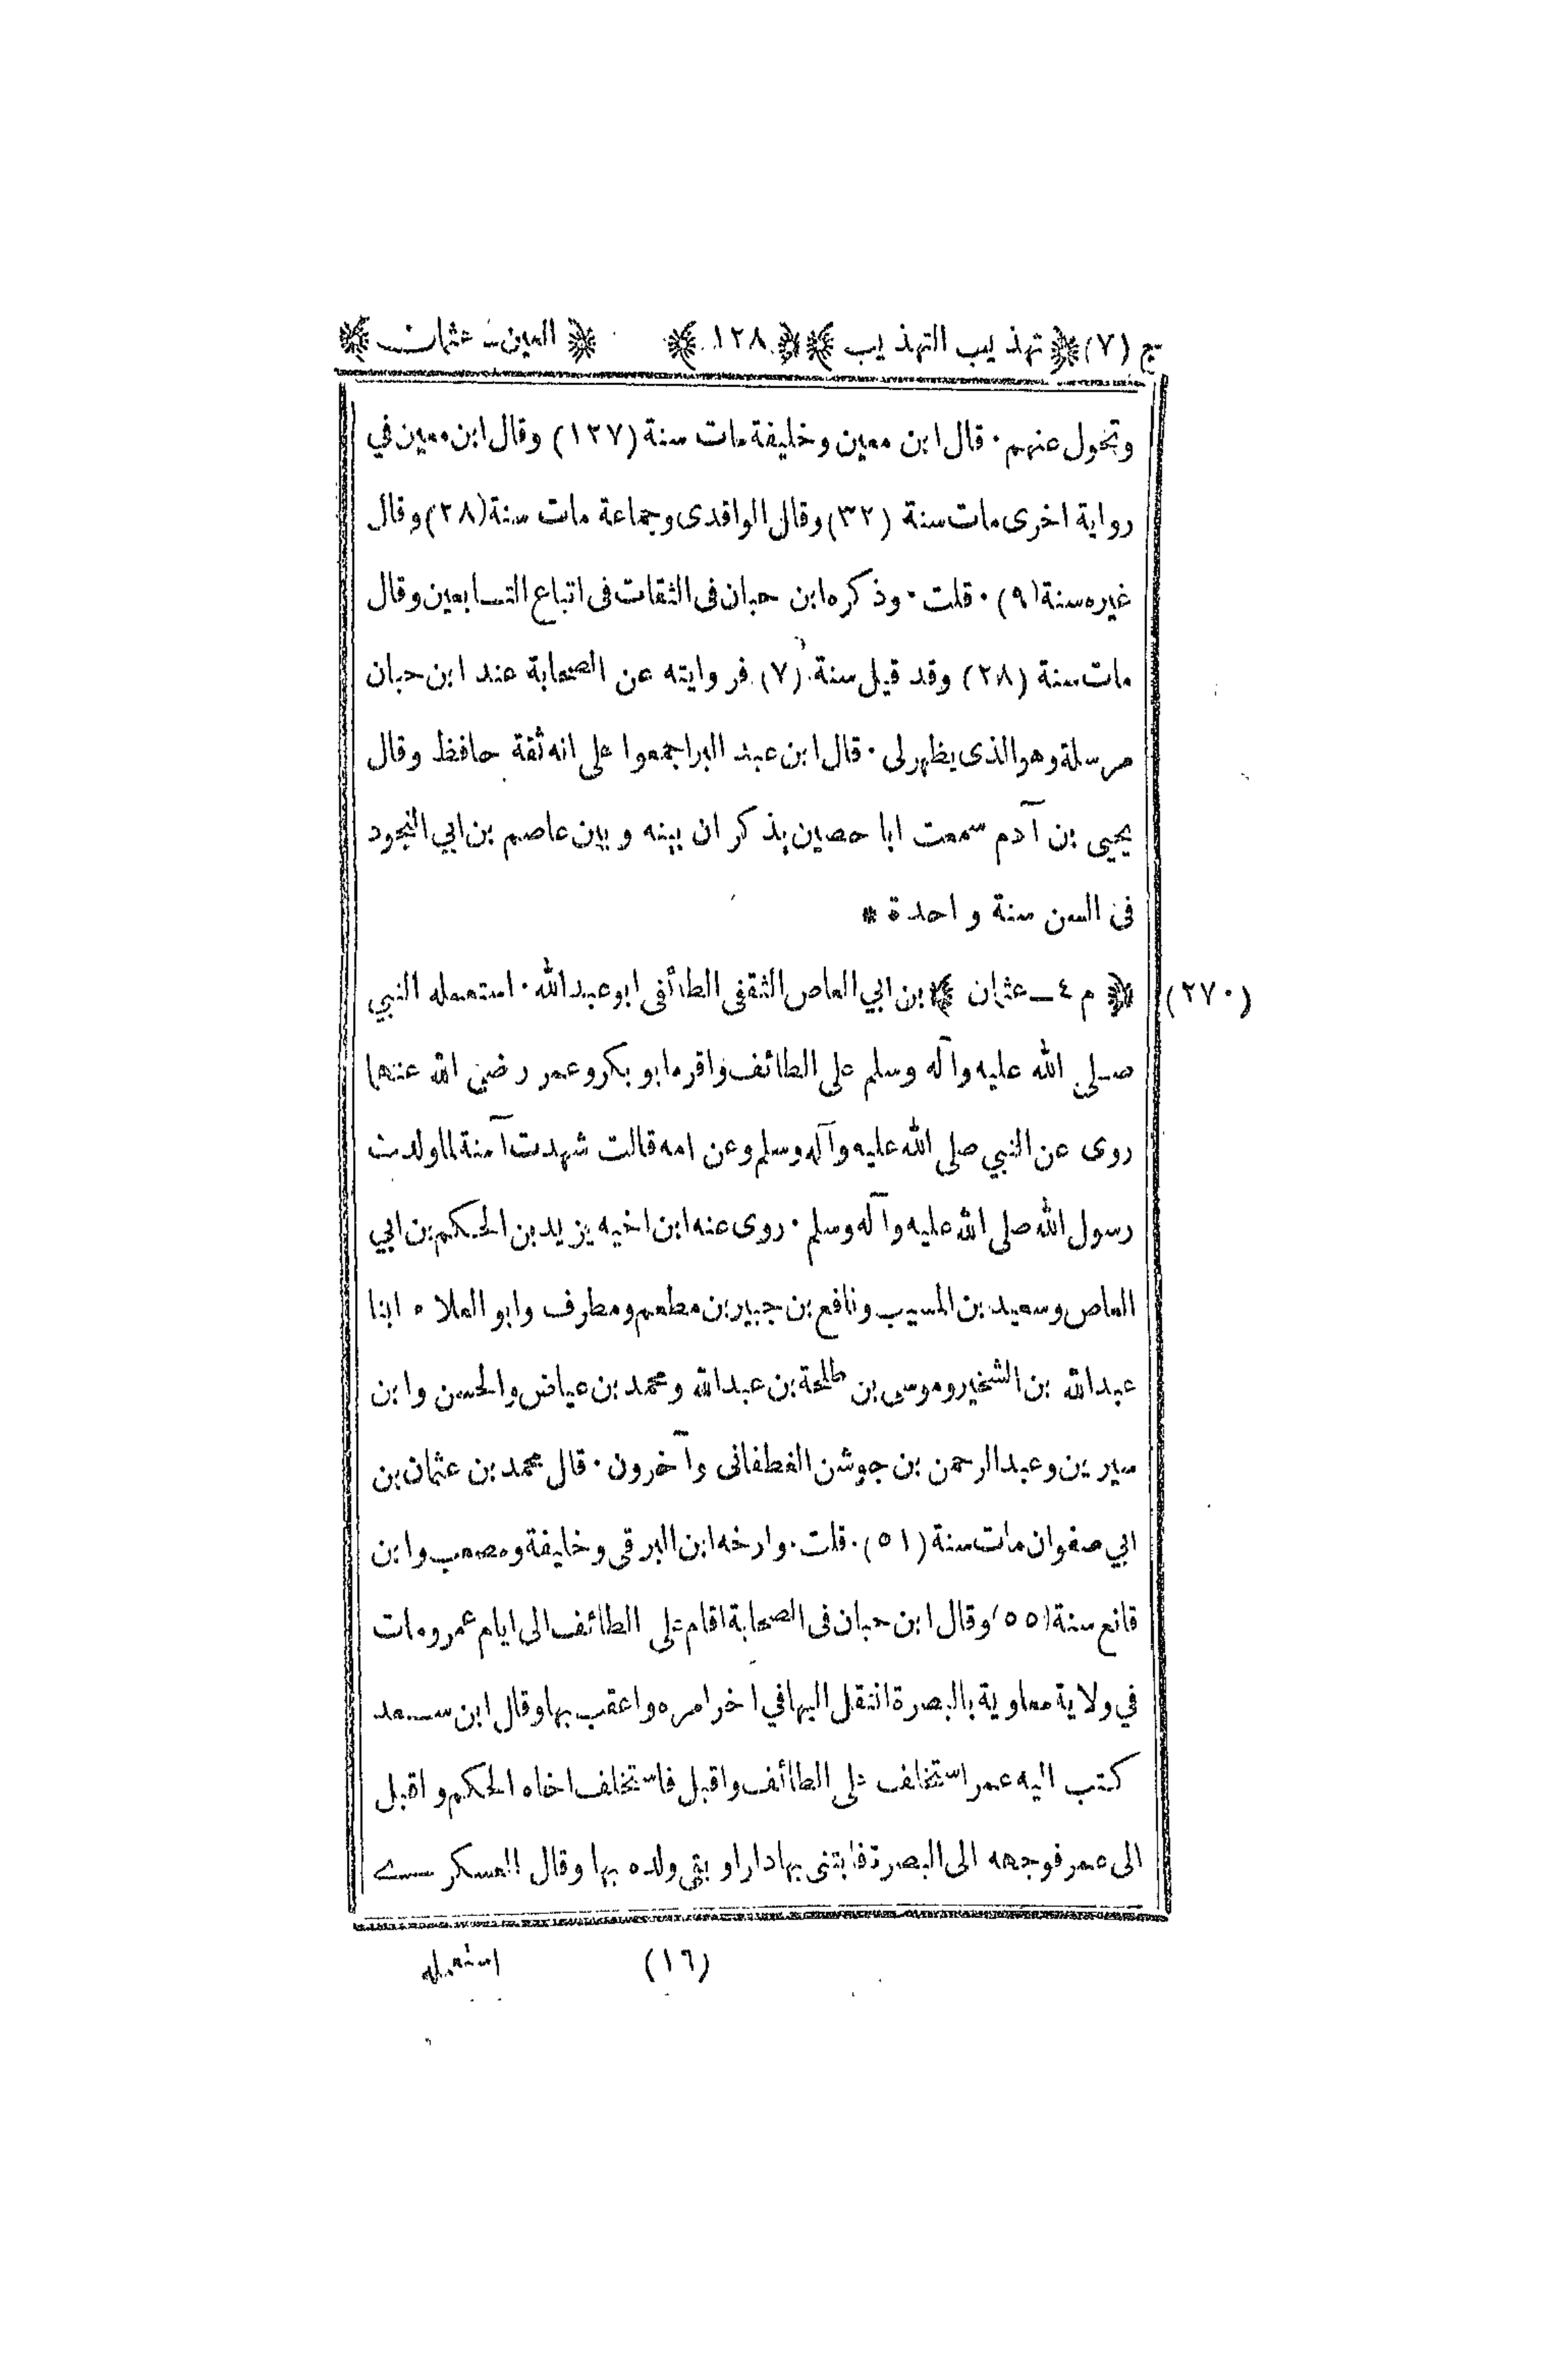 ج (٧) ﴿ تهذيب التهذيب ﴾ ﴿ ١٢٨ ﴾ ﴿ العين - عثمان ﴾
وتحول عنهم٠ قال ابن معين وخليفة مات سنة (١٢٧) وقال ابن معين في
رواية اخرى مات سنة (٣٢) وقال الواقدى وجماعة مات سنة (٢٨) وقال
غيره سنة (٩)٠ قلت٠ وذكره ابن حبان فى الثقات فى اتباع التابعين وقال
مات سنة (٢٨) وقد قيل سنة (٧) فروايته عن الصحابة عند ابن حبان
مرسلة وهو الذى يظهر لى٠ قال ابن عبد البر اجمعوا على انه ثقة حافظ وقال
يحيى بن آدم سمعت ابا حصين يذكر ان بينه وبين عاصم بن ابي النجود
فى السن سنة واحدة *
(٢٧٠) ﴿ م ٤ ـ عثمان ﴾ بن ابي العاص الثقفى الطائفى ابو عبد الله٠ استعمله النبي
صلى الله عليه وآله وسلم على الطائف واقره ابو بكر وعمر رضي الله عنهما
روى عن النبي صلى الله عليه وآله وسلم وعن امه قالت شهدت آمنة لما ولدت
رسول الله صلى الله عليه وآله وسلم٠ روى عنه ابن اخيه يزيد بن الحكم بن ابي
العاص وسعيد بن المسيب ونافع بن جبير بن مطعم ومطرف وابو العلاء ابنا
عبد الله بن الشخير وموسى بن طلحة بن عبد الله ومحمد بن عياض والحسن وابن
سيرين وعبد الرحمن بن جوشن الغطفانى وآخرون٠ قال محمد بن عثمان بن
ابي صفوان مات سنة (٥١)٠ قلت٠ وارخه ابن البرقى وخليفة ومصعب وابن
قانع سنة (٥٥) وقال ابن حبان فى الصحابة اقام على الطائف الى ايام عمر ومات
في ولاية معاوية بالبصرة انتقل اليها في اخر امره واعقب بها وقال ابن سعد
كتب اليه عمر استخلف على الطائف واقبل فاستخلف اخاه الحكم واقبل
الى عمر فوجهه الى البصرة فابتنى بها دارا وبقي ولده بها وقال العسكرى
(١٦) استعمله